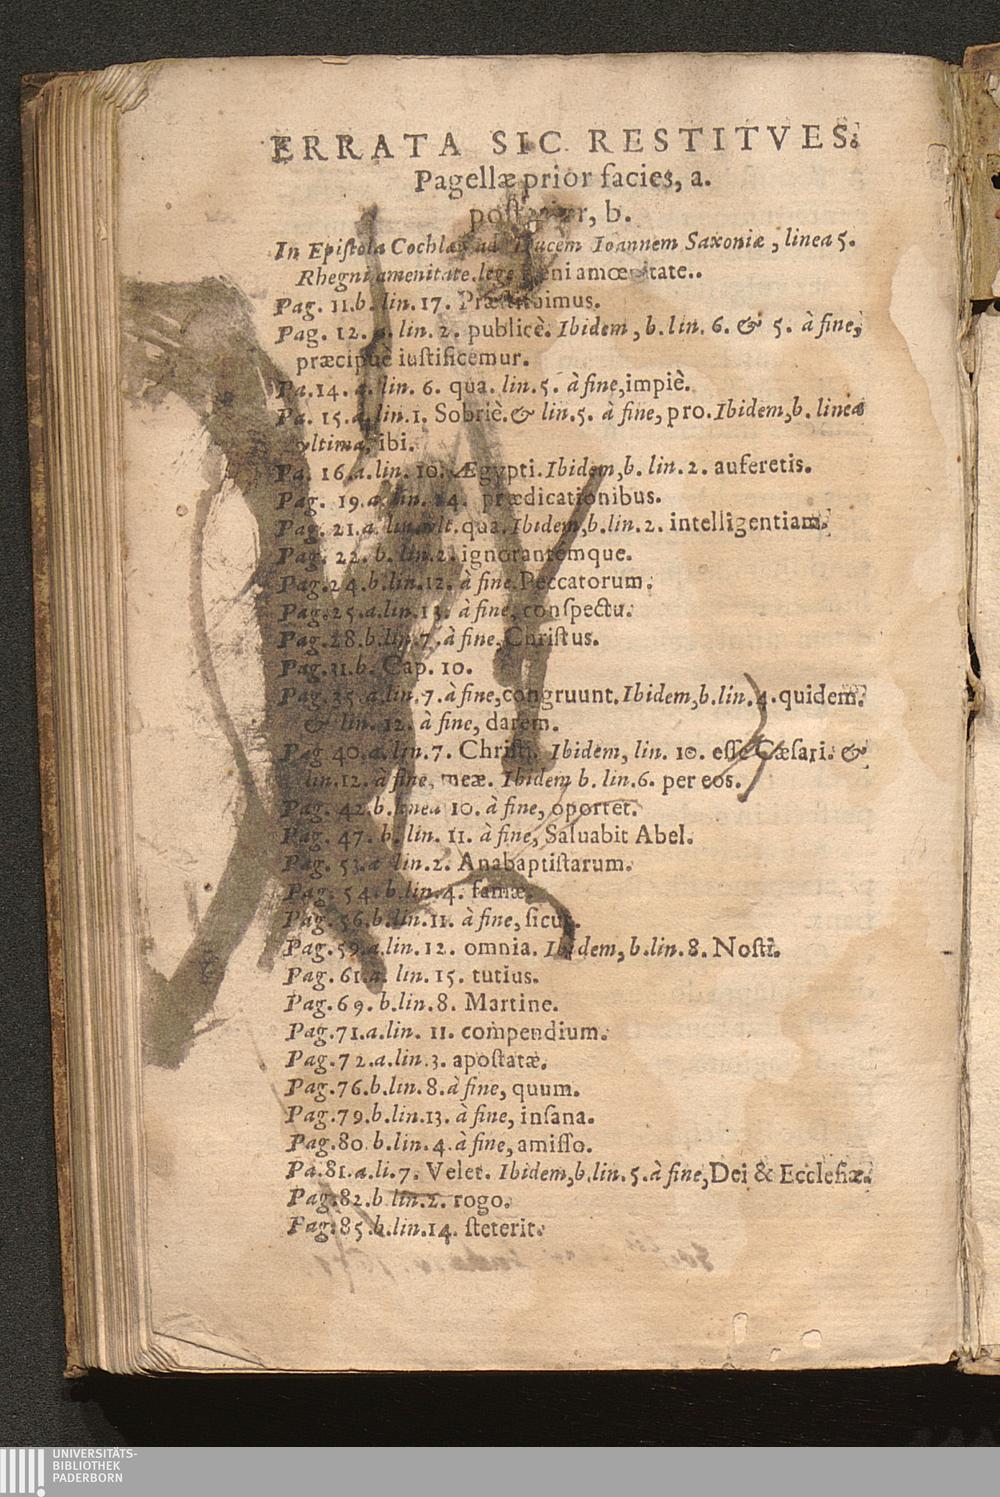 ERRATA SIC RESTITVES.
Pagellæ prior facies, a.
posterior, b.
In Epistola Cochlæi ad Ducem Ioannem Saxoniæ, linea 5.
Rhegni amenitate. lege Rheni amœnitate..
Pag. 11.b. lin. 17. Præstitimus.
Pag. 12. a. lin. 2. publicè. Ibidem, b. lin. 6. & 5. à fine,
præcipuè iustificemur.
Pa. 14. a. lin. 6. qua. lin. 5. à fine, impiè.
Pa. 15. a. lin. 1. Sobriè. & lin. 5. à fine, pro. Ibidem, b. linea
vltima, ibi.
Pa. 16. a. lin. 10. Ægypti. Ibidem, b. lin. 2. auferetis.
Pag. 19. a. lin. 14. prædicationibus.
Pag. 21. a. lin. vlt. qua. Ibidem, b. lin. 2. intelligentiam.
Pag. 22. b. lin. 2. ignorantemque.
Pag. 24. b. lin. 12. à fine, Peccatorum.
Pag. 25. a. lin. 13. à fine, conspectu.
Pag. 28. b. lin. 7. à fine, Christus.
Pag. 31. b. Cap. 10.
Pag. 35. a. lin. 7. à fine, congruunt. Ibidem, b. lin. 4. quidem.
& lin. 12. à fine, darem.
Pag. 40. a. lin. 7. Christi. Ibidem, lin. 10. esse Cæsari. &
lin. 12. à fine, meæ. Ibidem b. lin. 6. per eos.
Pag. 42. b. linea 10. à fine, oportet.
Pag. 47. b. lin. 11. à fine, Saluabit Abel.
Pag. 53. a lin. 2. Anabaptistarum.
Pag. 54. b. lin. 4. famæ.
Pag. 56. b. lin. 11. à fine, sicut.
Pag. 59. a. lin. 12. omnia. Ibidem, b. lin. 8. Nosti.
Pag. 61. a. lin. 15. tutius.
Pag. 69. b. lin. 8. Martine.
Pag. 71. a. lin. 11. compendium.
Pag. 72. a. lin. 3. apostatæ.
Pag. 76. b. lin. 8. à fine, quum.
Pag. 79. b. lin. 13. à fine, insana.
Pag. 80. b. lin. 4. à fine, amisso.
Pa. 81. a. li. 7. Velet. Ibidem, b. lin. 5. à fine, Dei & Ecclesiæ.
Pag. 82. b lin. 2. rogo.
Pag. 85. b. lin. 14. steterit.
UNIVERSITÄTS-
BIBLIOTHEK
PADERBORN